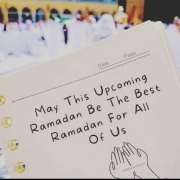 Date Page
May This Upcoming
Ramadan Be The Best
Ramadan For All
Of Us